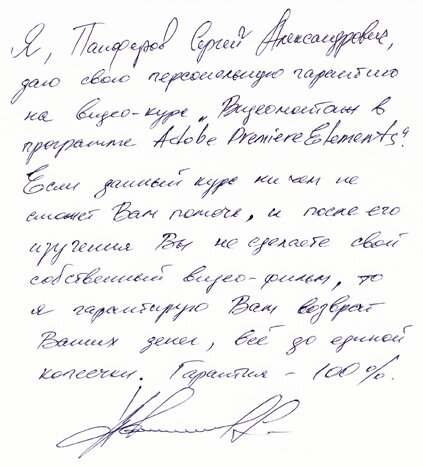 Я, Панферов Сергей Александрович,
даю свою персональную гарантию
на видео-курс „Видеомонтаж в
программе Adobe Premiere Elements“.
Если данный курс ни чем не
сможет Вам помочь, и после его
изучения Вы не сделаете свой
собственный видео-фильм, то
я гарантирую Вам возврат
Ваших денег, всё до единой
копеечки. Гарантия - 100%.